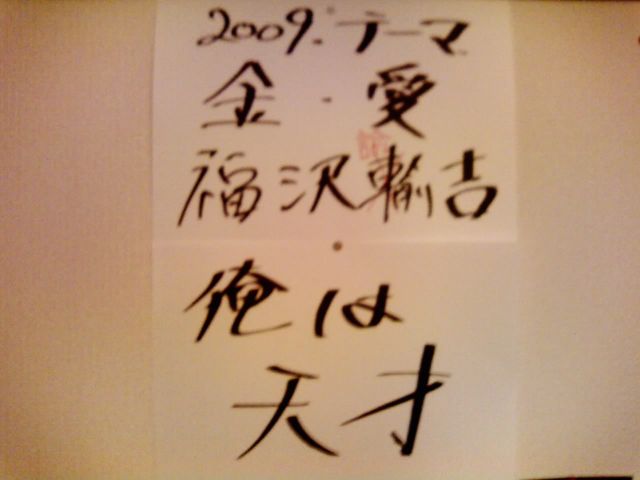 2009.テーマ
金・愛
福沢輸吉
俺は
天才